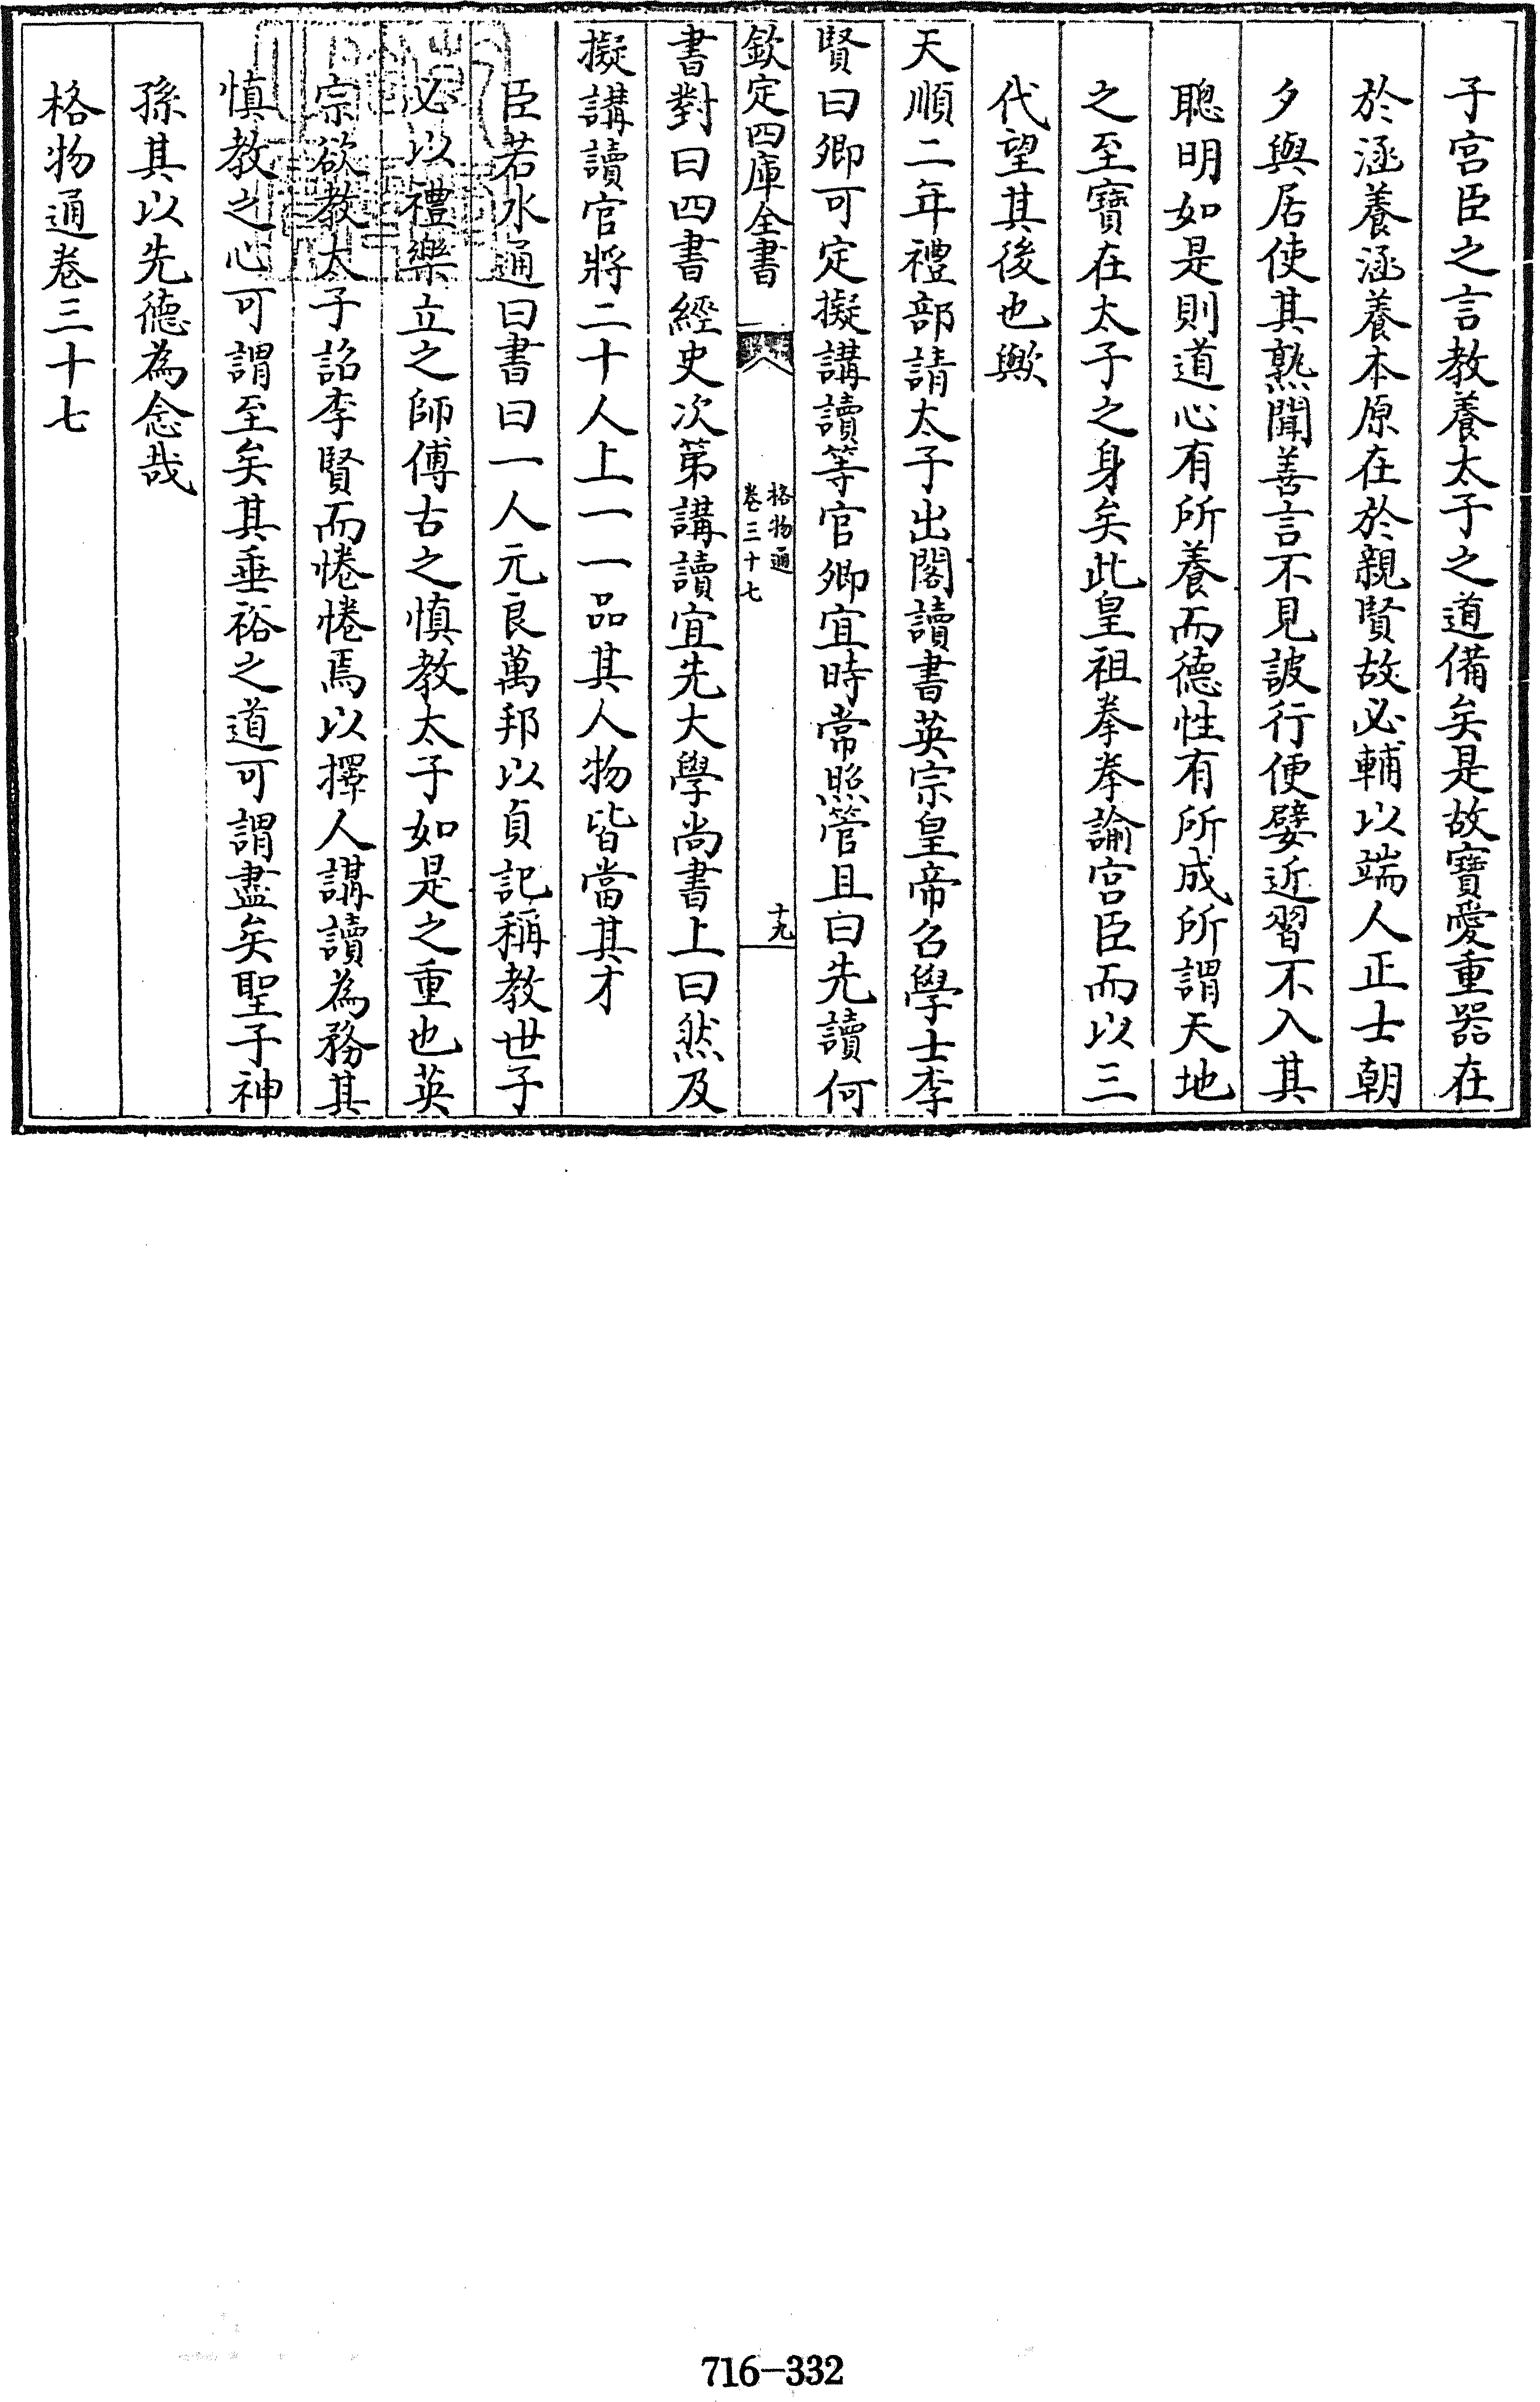 子宮臣之言教養太子之道備矣是故寶愛重器在
於涵養涵養本原在於親賢故必輔以端人正士朝
夕與居使其熟聞善言不見詖行便嬖近習不入其
聰明如是則道心有所養而德性有所成所謂天地
之至寶在太子之身矣此皇祖拳拳諭宮臣而以三
代望其後也歟
天順二年禮部請太子出閣讀書英宗皇帝名學士李
賢曰卿可定擬講讀等官卿宜時常照管且曰先讀何
欽定四庫全書
格物通
卷三十七
十九
書對曰四書經史次第講讀宜先大學尚書上曰然及
擬講讀官將二十人上一一品其人物皆當其才
臣若水通曰書曰一人元良萬邦以貞記稱教世子
必以禮樂立之師傅古之慎教太子如是之重也英
宗欲教太子詔李賢而惓惓焉以擇人講讀為務其
慎教之心可謂至矣其垂裕之道可謂盡矣聖子神
孫其以先德為念哉
格物通卷三十七
716-332